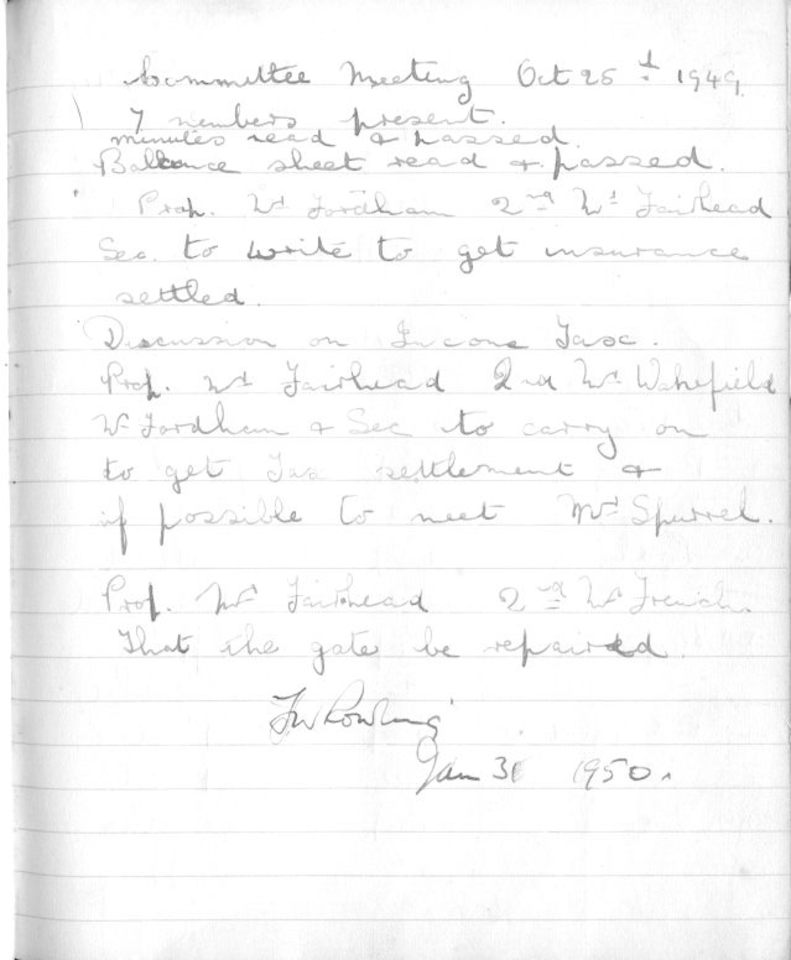 Committee Meeting Oct 25 t 1949.
7 members present.
minutes read & passed.
Ballance sheet read & passed.
Prop. Mr Fordham 2nd Mr Fairhead
Sec. to write to get insurance
settled.
Discussion on Income Tax.
Prop. Mr Fairhead 2nd Mr Wakefield
Mr Fordham & Sec to carry on
to get Tax settlement &
if possible to meet Mr Spurrel.
Prop. Mr Fairhead 2nd Mr French.
That the gate be repaired.
FW Rowling
Jan 31 1950.